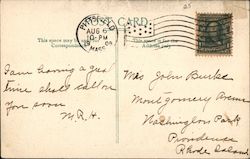 25
POST CARD
PITTSFIELD
AUG 6
10-PM
MASS.
This space may be
Correspondence
This space is for the
Address only
I am having a great
time shall call on
you soon
M. R. H.
Mrs John Burke
Montgomery Avenue
Washington Park
Providence
Rhode Island